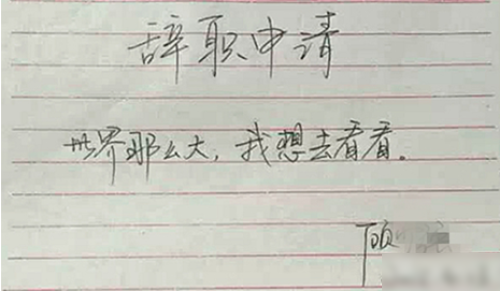 辞职申请
世界那么大，我想去看看。
顾